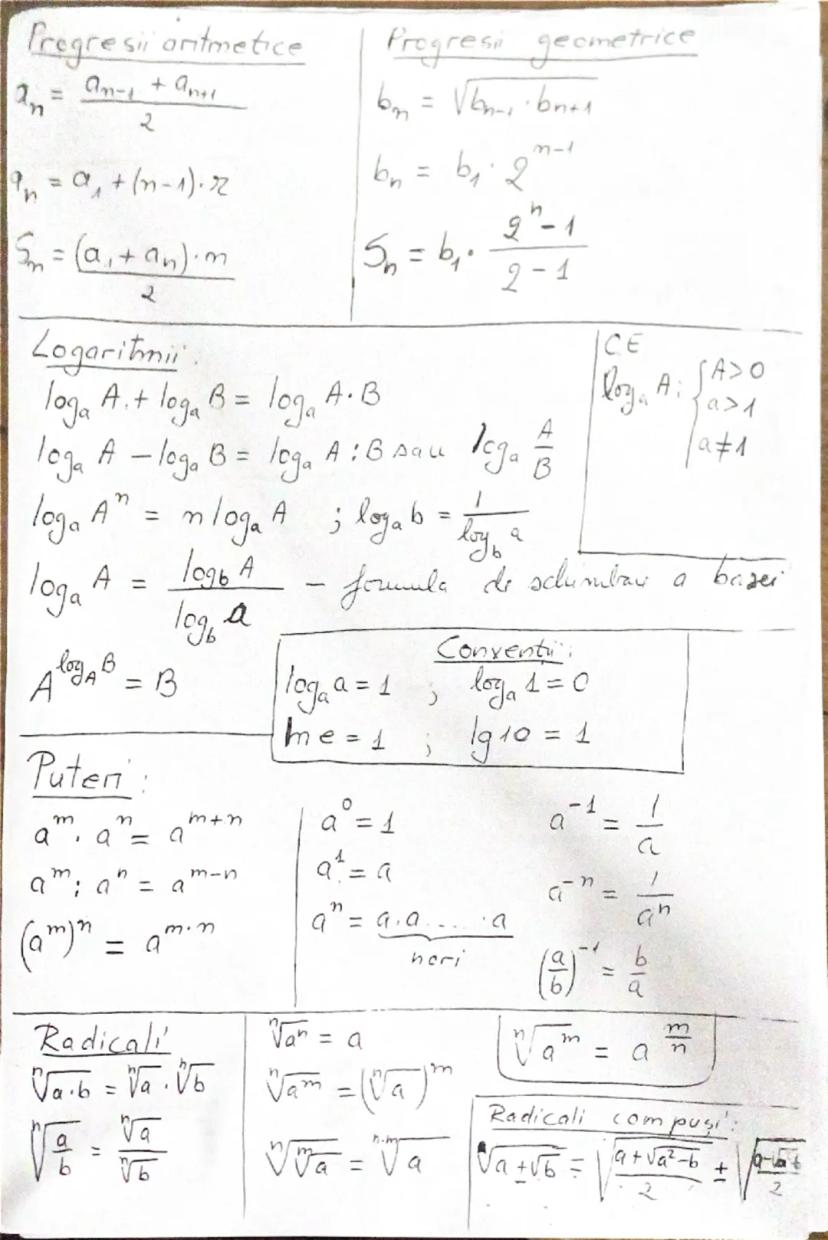 Progresii aritmetice
aₙ = (aₙ₋₁ + aₙ₊₁)/2
aₙ = a₁ + (n-1)·r
Sₙ = (a₁ + aₙ)·n / 2
Progresii geometrice
bₙ = √(bₙ₋₁ · bₙ₊₁)
bₙ = b₁ · qⁿ⁻¹
Sₙ = b₁ · (qⁿ - 1)/(q - 1)
Logaritmii:
logₐ A + logₐ B = logₐ A·B
logₐ A - logₐ B = logₐ A : B sau logₐ A/B
logₐ Aⁿ = n logₐ A ; logₐ b = 1/log_b a
logₐ A = log_b A / log_b a - formula de schimbare a bazei
A^(log_A B) = B
CE
logₐ A: { A>0
a>1
a≠1
Convenții:
logₐ a = 1 ; logₐ 1 = 0
ln e = 1 ; lg 10 = 1
Puteri:
aᵐ · aⁿ = aᵐ⁺ⁿ
aᵐ : aⁿ = aᵐ⁻ⁿ
(aᵐ)ⁿ = aᵐ·ⁿ
a⁰ = 1
a¹ = a
aⁿ = a·a.....·a
n ori
a⁻¹ = 1/a
a⁻ⁿ = 1/aⁿ
(a/b)⁻¹ = b/a
Radicali
ⁿ√(a·b) = ⁿ√a · ⁿ√b
ⁿ√(a/b) = ⁿ√a / ⁿ√b
ⁿ√(aⁿ) = a
ⁿ√(aᵐ) = (ⁿ√a)ᵐ
ⁿ√(ᵐ√a) = ⁿ·ᵐ√a
ⁿ√(aᵐ) = a^(m/n)
Radicali compuși:
√(a ± √b) = √((a + √(a² - b))/2) ±